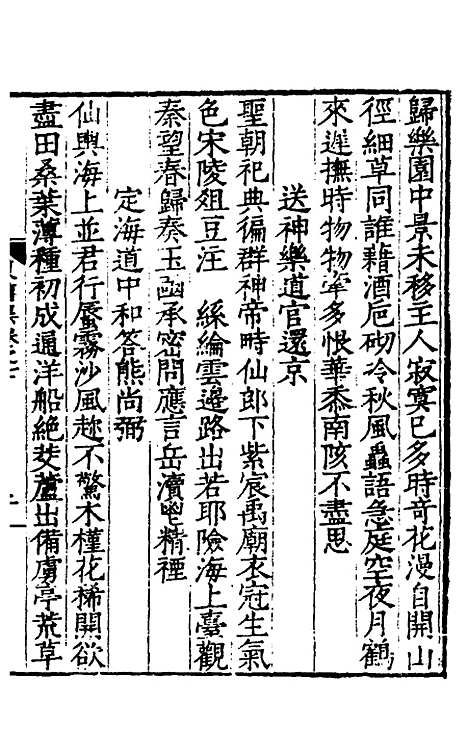 歸樂園中景未移主人寂寞已多時奇花漫自開山
徑細草同誰藉酒卮砌冷秋風蟲語急庭空夜月鶴
來遲撫時物物牽多恨華黍南陔不盡思
送神樂道官還京
聖朝祀典徧群神帝時仙郎下紫宸禹廟衣冠生氣
色宋陵俎豆注　絲綸雲邊路出若耶險海上臺觀
秦望春歸奏玉函承密問應言岳瀆鬯精禋
定海道中和答熊尚弼
仙輿海上並君行蜃霧沙風趂不驚木槿花稀開欲
盡田桑葉薄種初成通洋船絶犮蘆出備虜亭荒草